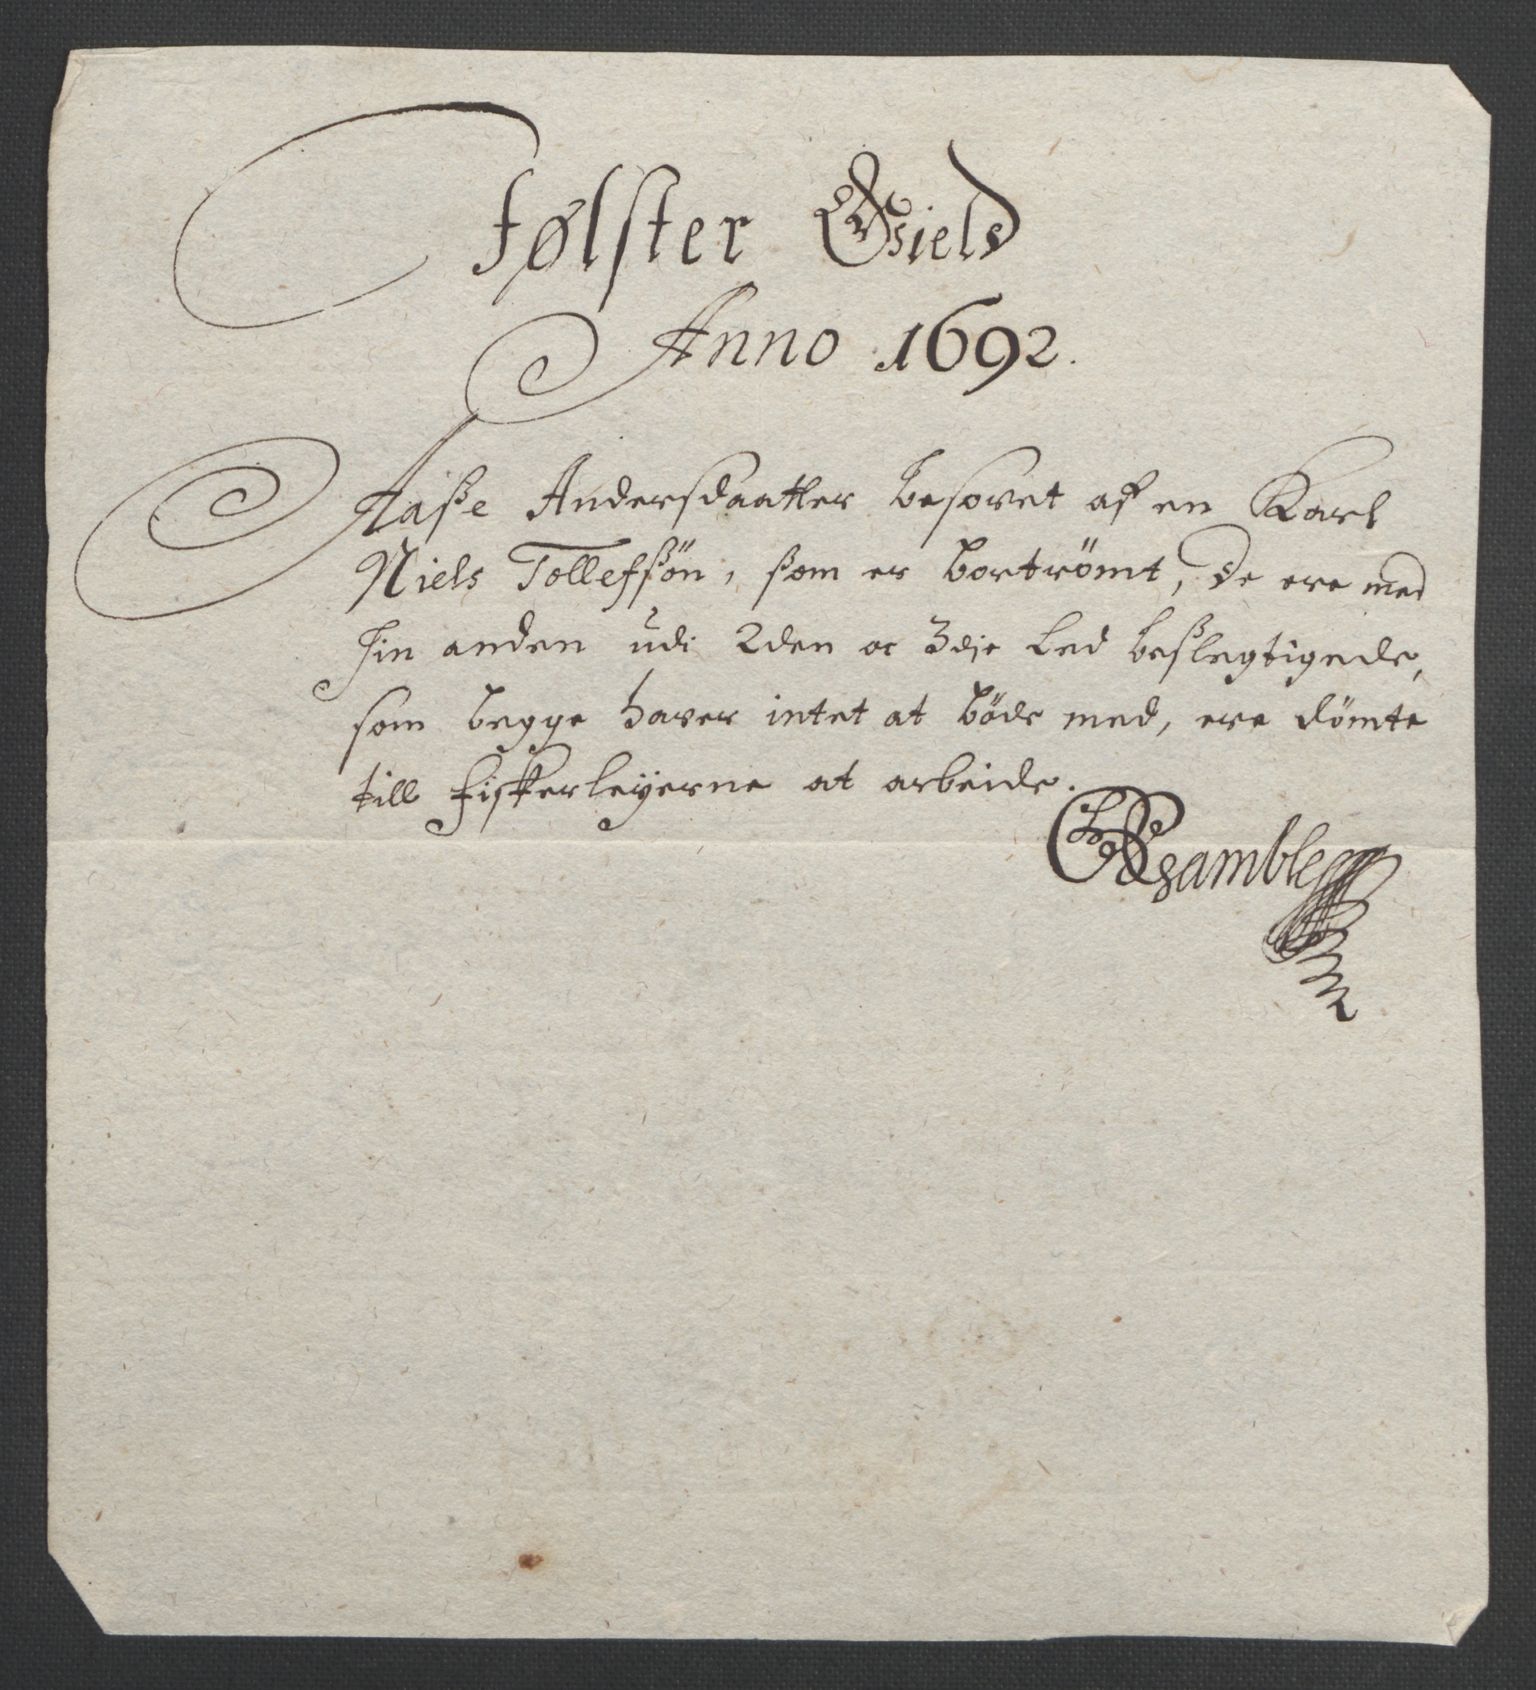 Jølster Gield
Anno 1692.
Aaße Andersdaatter besovet af en Karl
Niels Tollefßön, som er bortrömt, de ere med
hin anden udi 2den oc 3die Led beslegtigede,
som begge haver intet at böde med, ere dömte
till Fiskerleyerne at arbeide.